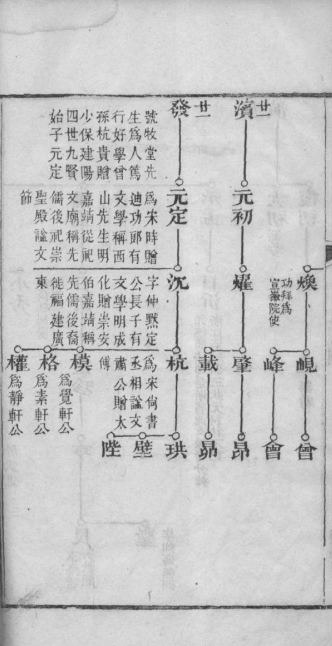 煥
功拜為
宣徽院使
峴
曾
峰
會
廿
濱
元初
燿
肇
昂
載
昴
廿
發
號牧堂先
生為人篤
行好學曾
孫杭貴贈
少保建陽
四世九賢
始子元定
元定
為宋時贈
迪功郎有
文學稱西
山先生明
嘉靖從祀
文廟稱先
儒後祀崇
聖殿諡文
節
沉
字仲默定
公長子有
文學明成
化贈崇安
伯嘉靖稱
先儒後裔
徙福建廣
東
杭
為宋尚書
丞相諡文
肅公贈太
傅
珙
壁
陛
模
為覺軒公
格
為素軒公
權
為靜軒公